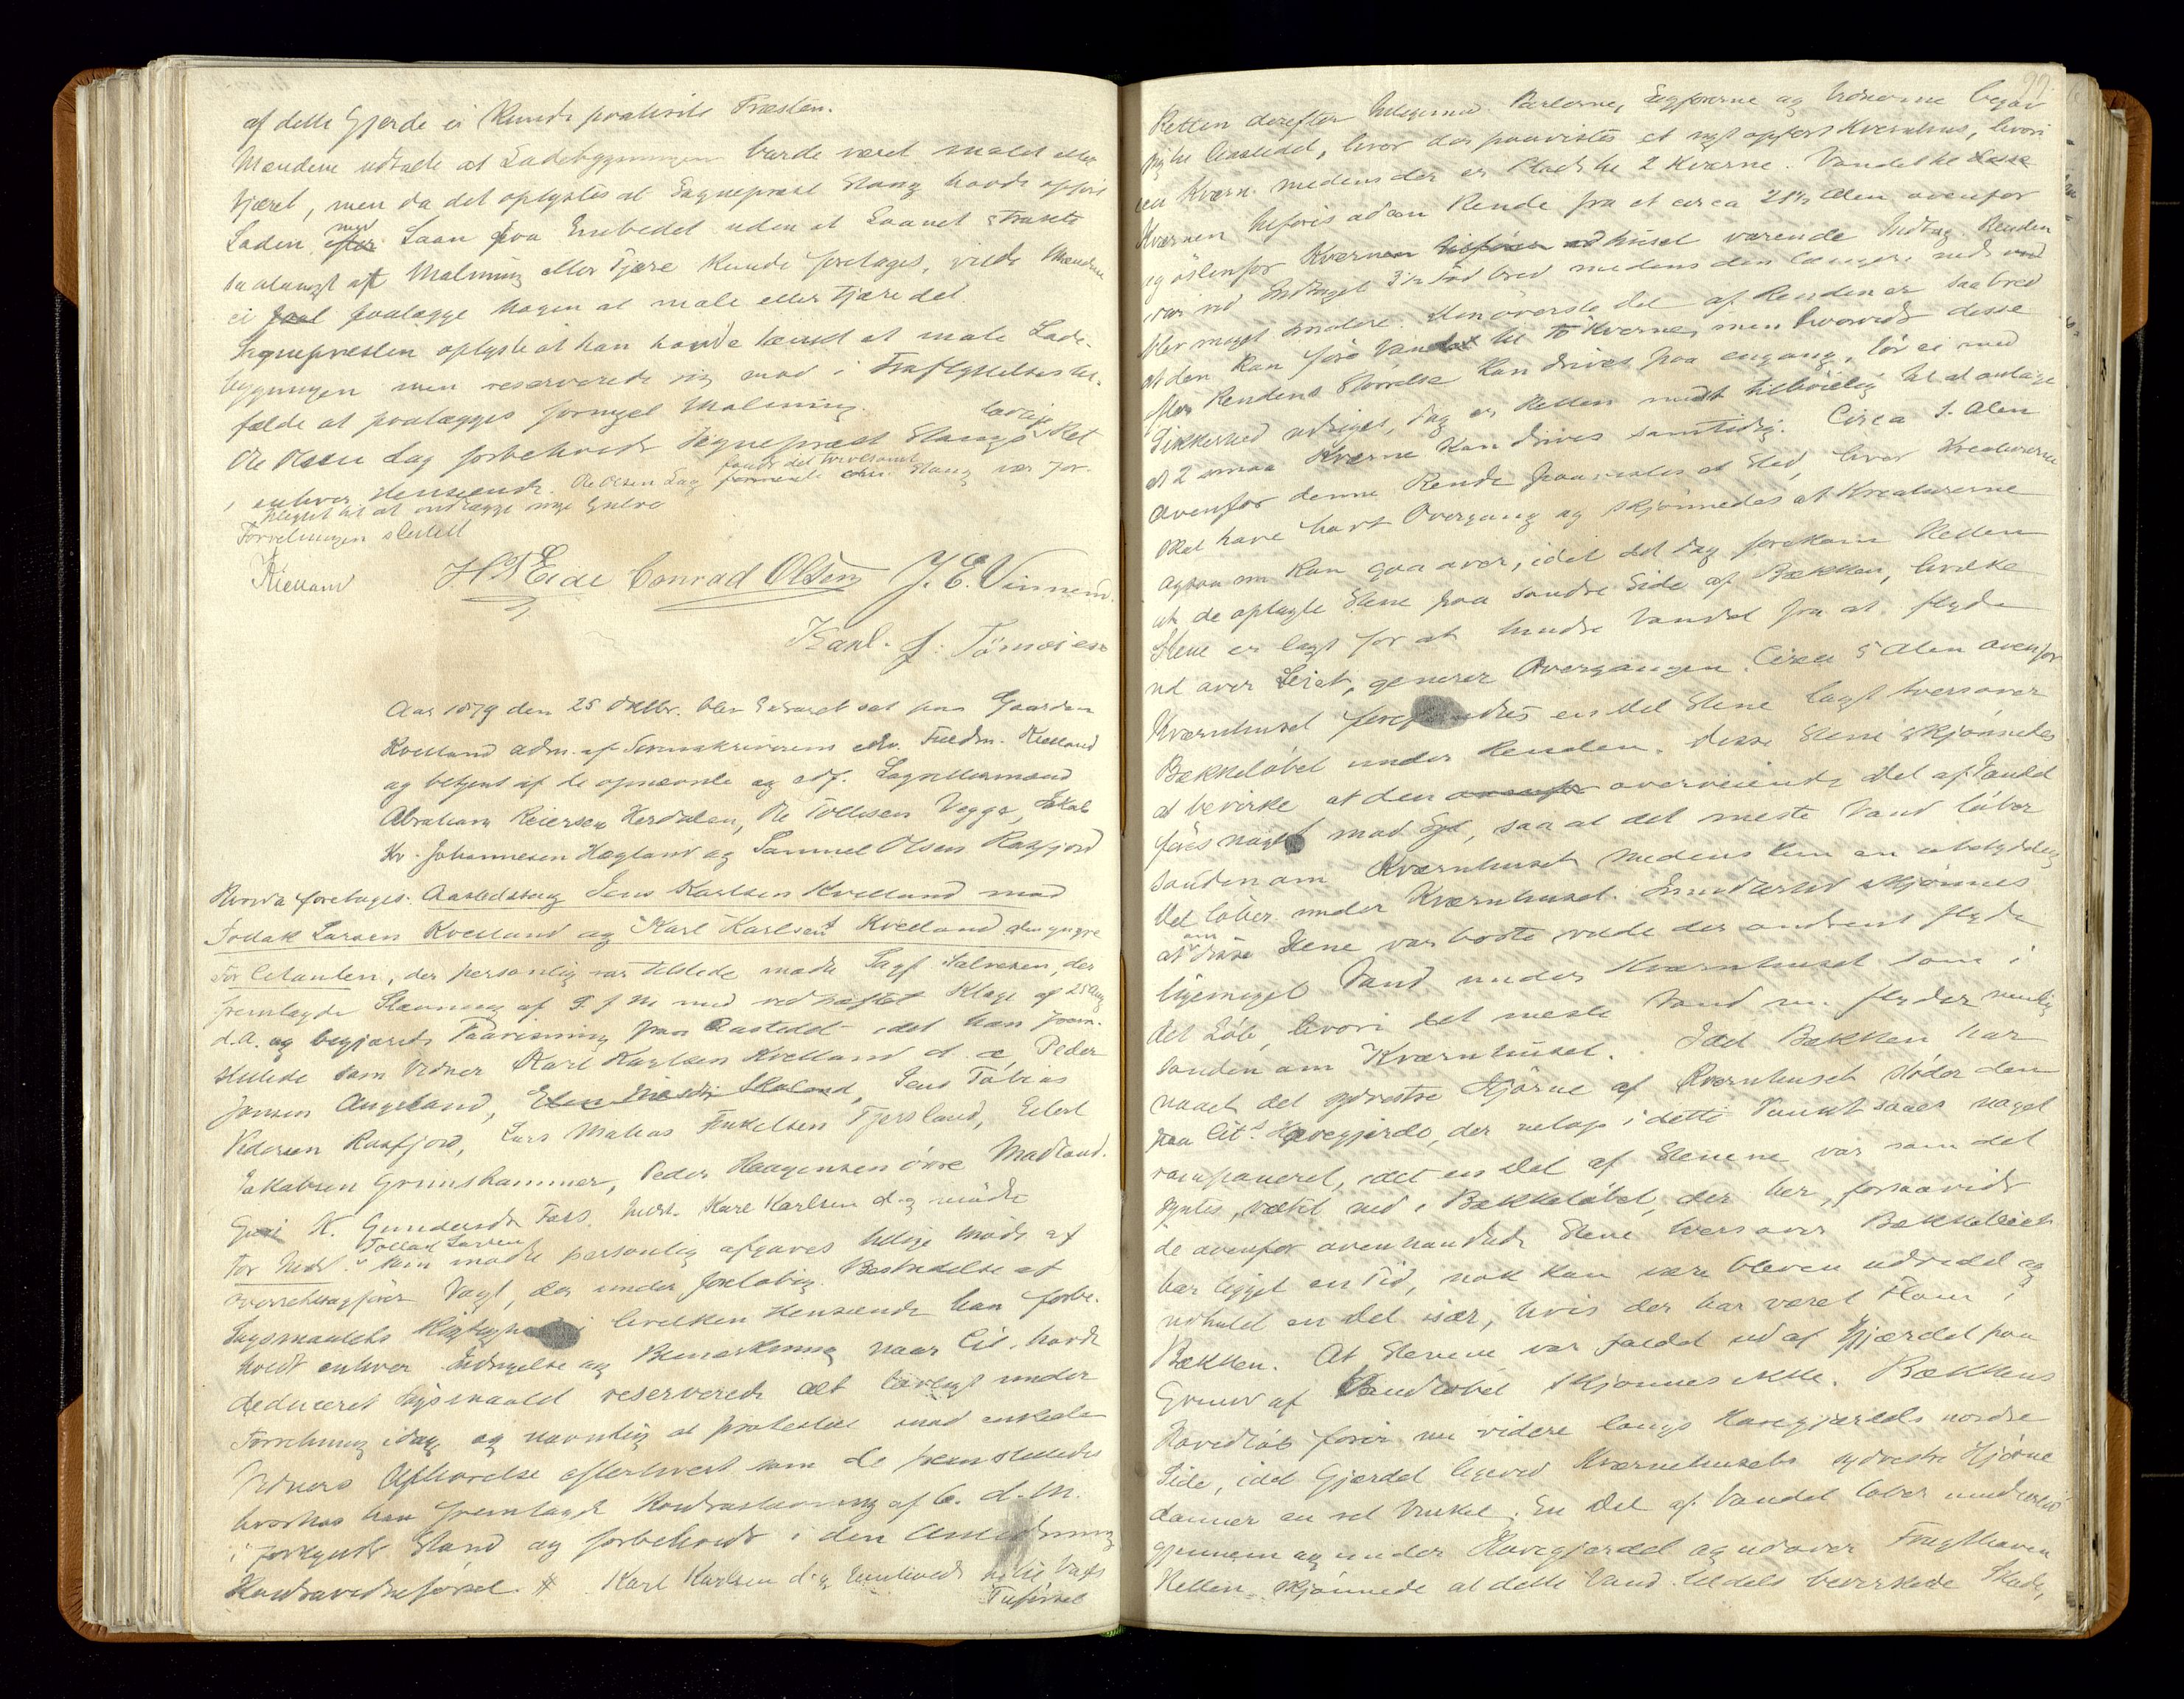 af dette Gjerde ei kunde paahvile Præsten.
Mændene udtalte at Ladebygningen burde været malet eller
tjæret, men da det oplystes at Sognepræst Stang havde opført
Laden efter med Laan fra Embedet uden at Laanet strakte
saalangt at Maling eller Tjære kunde foretages, vilde Mændene
ei paalægge nogen at male eller tjære det.
Sognepræsten oplyste at han havde tænkt at male Lade-
bygningen men reserverede sig mod i Fraflyttelsestil-
fælde at paalægges fornyet Maling.
Ole Olsen Lag forbeholdt Sognepræst Stangs lovlige Ret
i enhver Henseende. Ole Olsen Lag fandt det tvivlsomt om Stang var for-
pligtet til at indlægge nye Gulve
Forretningen sluttet
Kielland H T Eide Conrad Olsen J. E. Vinnem.
Karl. J. Tönnesen
Aar 1879 den 25 Oktbr. blev Extraret sat paa Gaarden
Kvelland adm. af Sorenskriverens edsv. Fuldm. Kielland
og betjent af de opnævnte og edf. Lagrettesmænd
Abraham Reiersen Herdalen, Ole Tollisen Vegge, Jakob
Kr. Johannesen Hægland og Samuel Olsen Rasfjord
Hvorda foretoges: Aastedssag Jens Karlsen Kvelland mod
Tollak Larsen Kvelland og Karl Karlsen Kvelland den yngre
For Citanten, der personlig var tilstede mødte Sagf. Salvesen, der
fremlagde Stævning af 9 f. M. med vedhæftet Klage af 25 Aug
d.A. og begjærede Paavisning paa Aastedet idet han frem-
stillede som Vidner Karl Karlsen Kvelland d. æ, Peder
Jensen Angeland, Jens Tobias
Pedersen Rasfjord, Lars Mathias Terkelsen Tjersland, Eilert
Jakobsen Grimshammer, Peder Haagensen övre Madland.
K. Gundersdr Foss. Karl Karlsen d.y. mödte
For Indst. Tollak Larsen som mødte personlig afgaves tillige Møde af
Overretssagfører Vogt, der under foreløbig Bestridelse af
Søgsmaalets Rigtighed i hvilken Henseende han forbe-
holdt enhver Indsigelse og Bemærkning naar Cit. havde
deduceret Søgsmaalet reserverede alt lovligt under
Forretning idag og navnlig at protestere mod enkelte
Vidners Afhørelse eftersom de fremstilledes
hvorhos han fremlagde Kontrastævning af 6. d. M.
i forkyndt Stand og forbeholdt i den Anledning
Kontravidneførsel # Karl Karlsen d.y. henholdt sig til Vogts
Tilførsel
99
Retten derefter Parterne, Sagførerne og Vidnerne begav
sig til Aastedet, hvor der paavistes et nyt opført Kvernhus, hvori
een Kværn medens der er Plads til 2 Kværne. Vandet til
Kværnen tilføres ad en Rende fra et circa 21½ Alen ovenfor
og östenfor Kværnhuset værende Indtag. Renden
var ved Indtaget 3½ Fod bred medens den længere ned
blev meget smalere. Den överste Del af Renden er saa bred
at den kan före Vand til to Kverne, men hvorvidt disse
efter Rendens Störrelse kan drives paa engang, tör ei med
Sikkerhed udsiges, dog er Retten mest tilböielig til at antage
at 2 smaa Kværne kan drives samtidig. Circa 1. Alen
ovenfor denne Rende paavistes et Sted, hvor Kreaturerne
skal have havt Overgang og skjönnedes at Kreaturerne
ogsaa nu kan gaa over, idet det dog forekom Retten
at de oplagte Stene paa söndre Side af Bækken, hvilke
Stene er lagt for at hindre Vandet fra at flyde
ud over Leiet, generer Overgangen. Circa 5 Alen ovenfor
Kværnhuset forefandtes en Del Stene lagt tversover
Bækkelöbet under Renden. Disse Stene skjönnedes
at bevirke at den overveiende Del af Vandet
föres noget mod Syd, saa at det meste Vand löber
söndenom Kværnhuset medens kun en ubetydelig
Del löber under Kværnhuset. Imidlertid skjönnes
at om disse Stene var borte vilde der omtrent flyde
ligemeget Vand under Kværnhuset som i
det Löb, hvori det meste Vand nu flyder nemlig
söndenom Kværnhuset. Idet Bækken har
naaet det sydvestre Hjörne af Kværnhuset stöder den
paa Cit.s Havegjerde, der netop i dette Punkt saaes noget
ramponeret, idet en Del af Stenene var som det
syntes, væltet ned i Bækkelöbet, der her, forsaavidt
de ovenfor omhandlede Stene tversover Bækkeleiet
har ligget en Tid, nok kan være bleven udvidet og
udhulet en Del især, hvis der har været Flom i
Bækken. At Stenene var faldt ud af Gjærdet paa
Grund af Vandlöbet skjönnes ikke. Bækkens
Hovedlöb förer nu videre langs Havegjærdets nordre
Side, idet Gjærdet ligeved Kværnehusets sydvestre Hjörne
danner en ret Vinkel. En Del af Vandet löber imidlertid
gjennem og under Havegjærdet og udover Frugthaven
Retten skjönnede at dette Vand tildels bevirkede Skade,